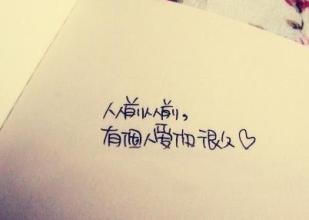 人前人前，
有個人愛你很久♡